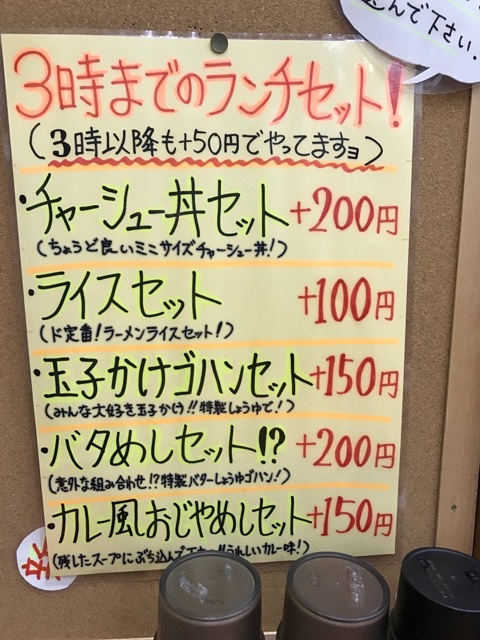 んで下さい.
3時までのランチセット!
(3時以降も+50円でやってますョ)
・チャーシュー丼セット +200円
(ちょうど良いミニサイズチャーシュー丼!)
・ライスセット +100円
(ド定番!ラーメンライスセット!)
・玉子かけゴハンセット+150円
(みんな大好き玉子かけ!!特製しょうゆで!)
・バタめしセット!? +200円
(意外な組み合わせ!?特製バターしょうゆゴハン!)
・カレー風おじやめしセット+150円
(残したスープにぶち込んで下 !!うれしいカレー味!)